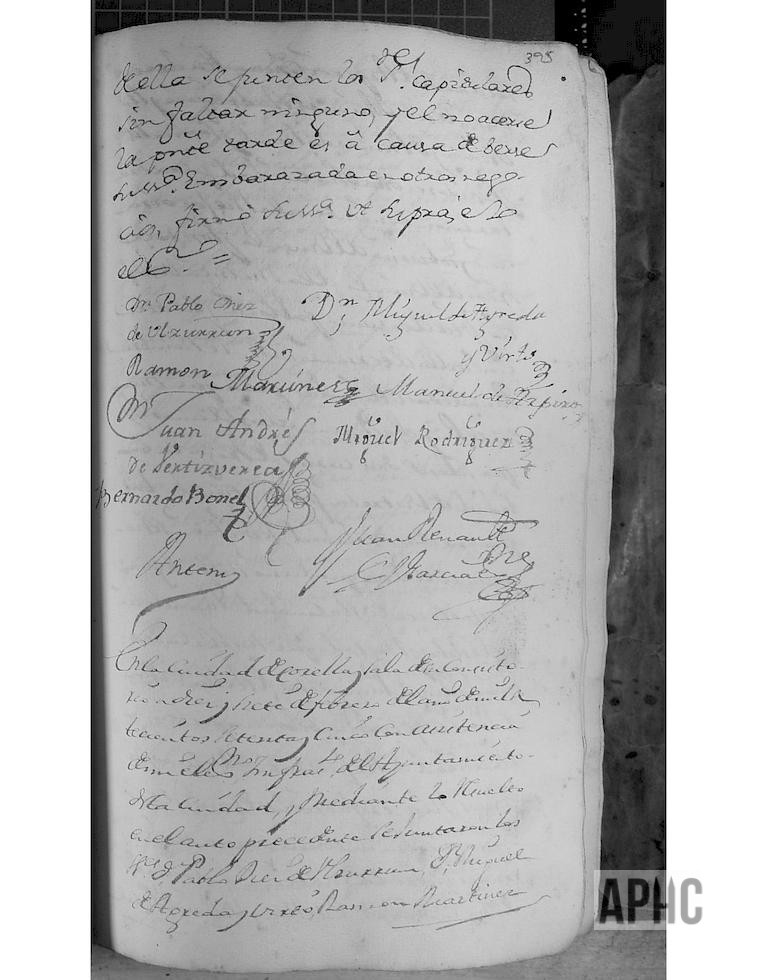 395
della se junten los S.res capitulares
sin faltar ninguno, y el no acerse
la pnte tarde es â causa de berse
su ssa. Embarazada en otros nego-
cios, firmó su ssa. Vt supra, e Yo
el es.no =
Dn. Pablo Diez
de Ulzurrun
Dn. Miguel de Agreda
y Virto
Ramon Martinez
Manuel de
Dn. Juan Andrés
Miguel Rodriguez
de
Bernardo Bonel
Juan Renault
Antemi
Pascual
En la Ciudad de Corella y sala de su Consisto-
rio a diez y siete de febrero del año de mil
setecientos setenta y Cinco Con asistencia
de mi el es.no Infras.to del Ayuntamiento
de esta Ciudad, y mediante lo resuelto
en el auto precedente se Juntaron los
S.res Dn. Pablo Diez de Ulzurrun, Dn. Miguel
de Agreda y Virto, Ramon Martinez
APHC